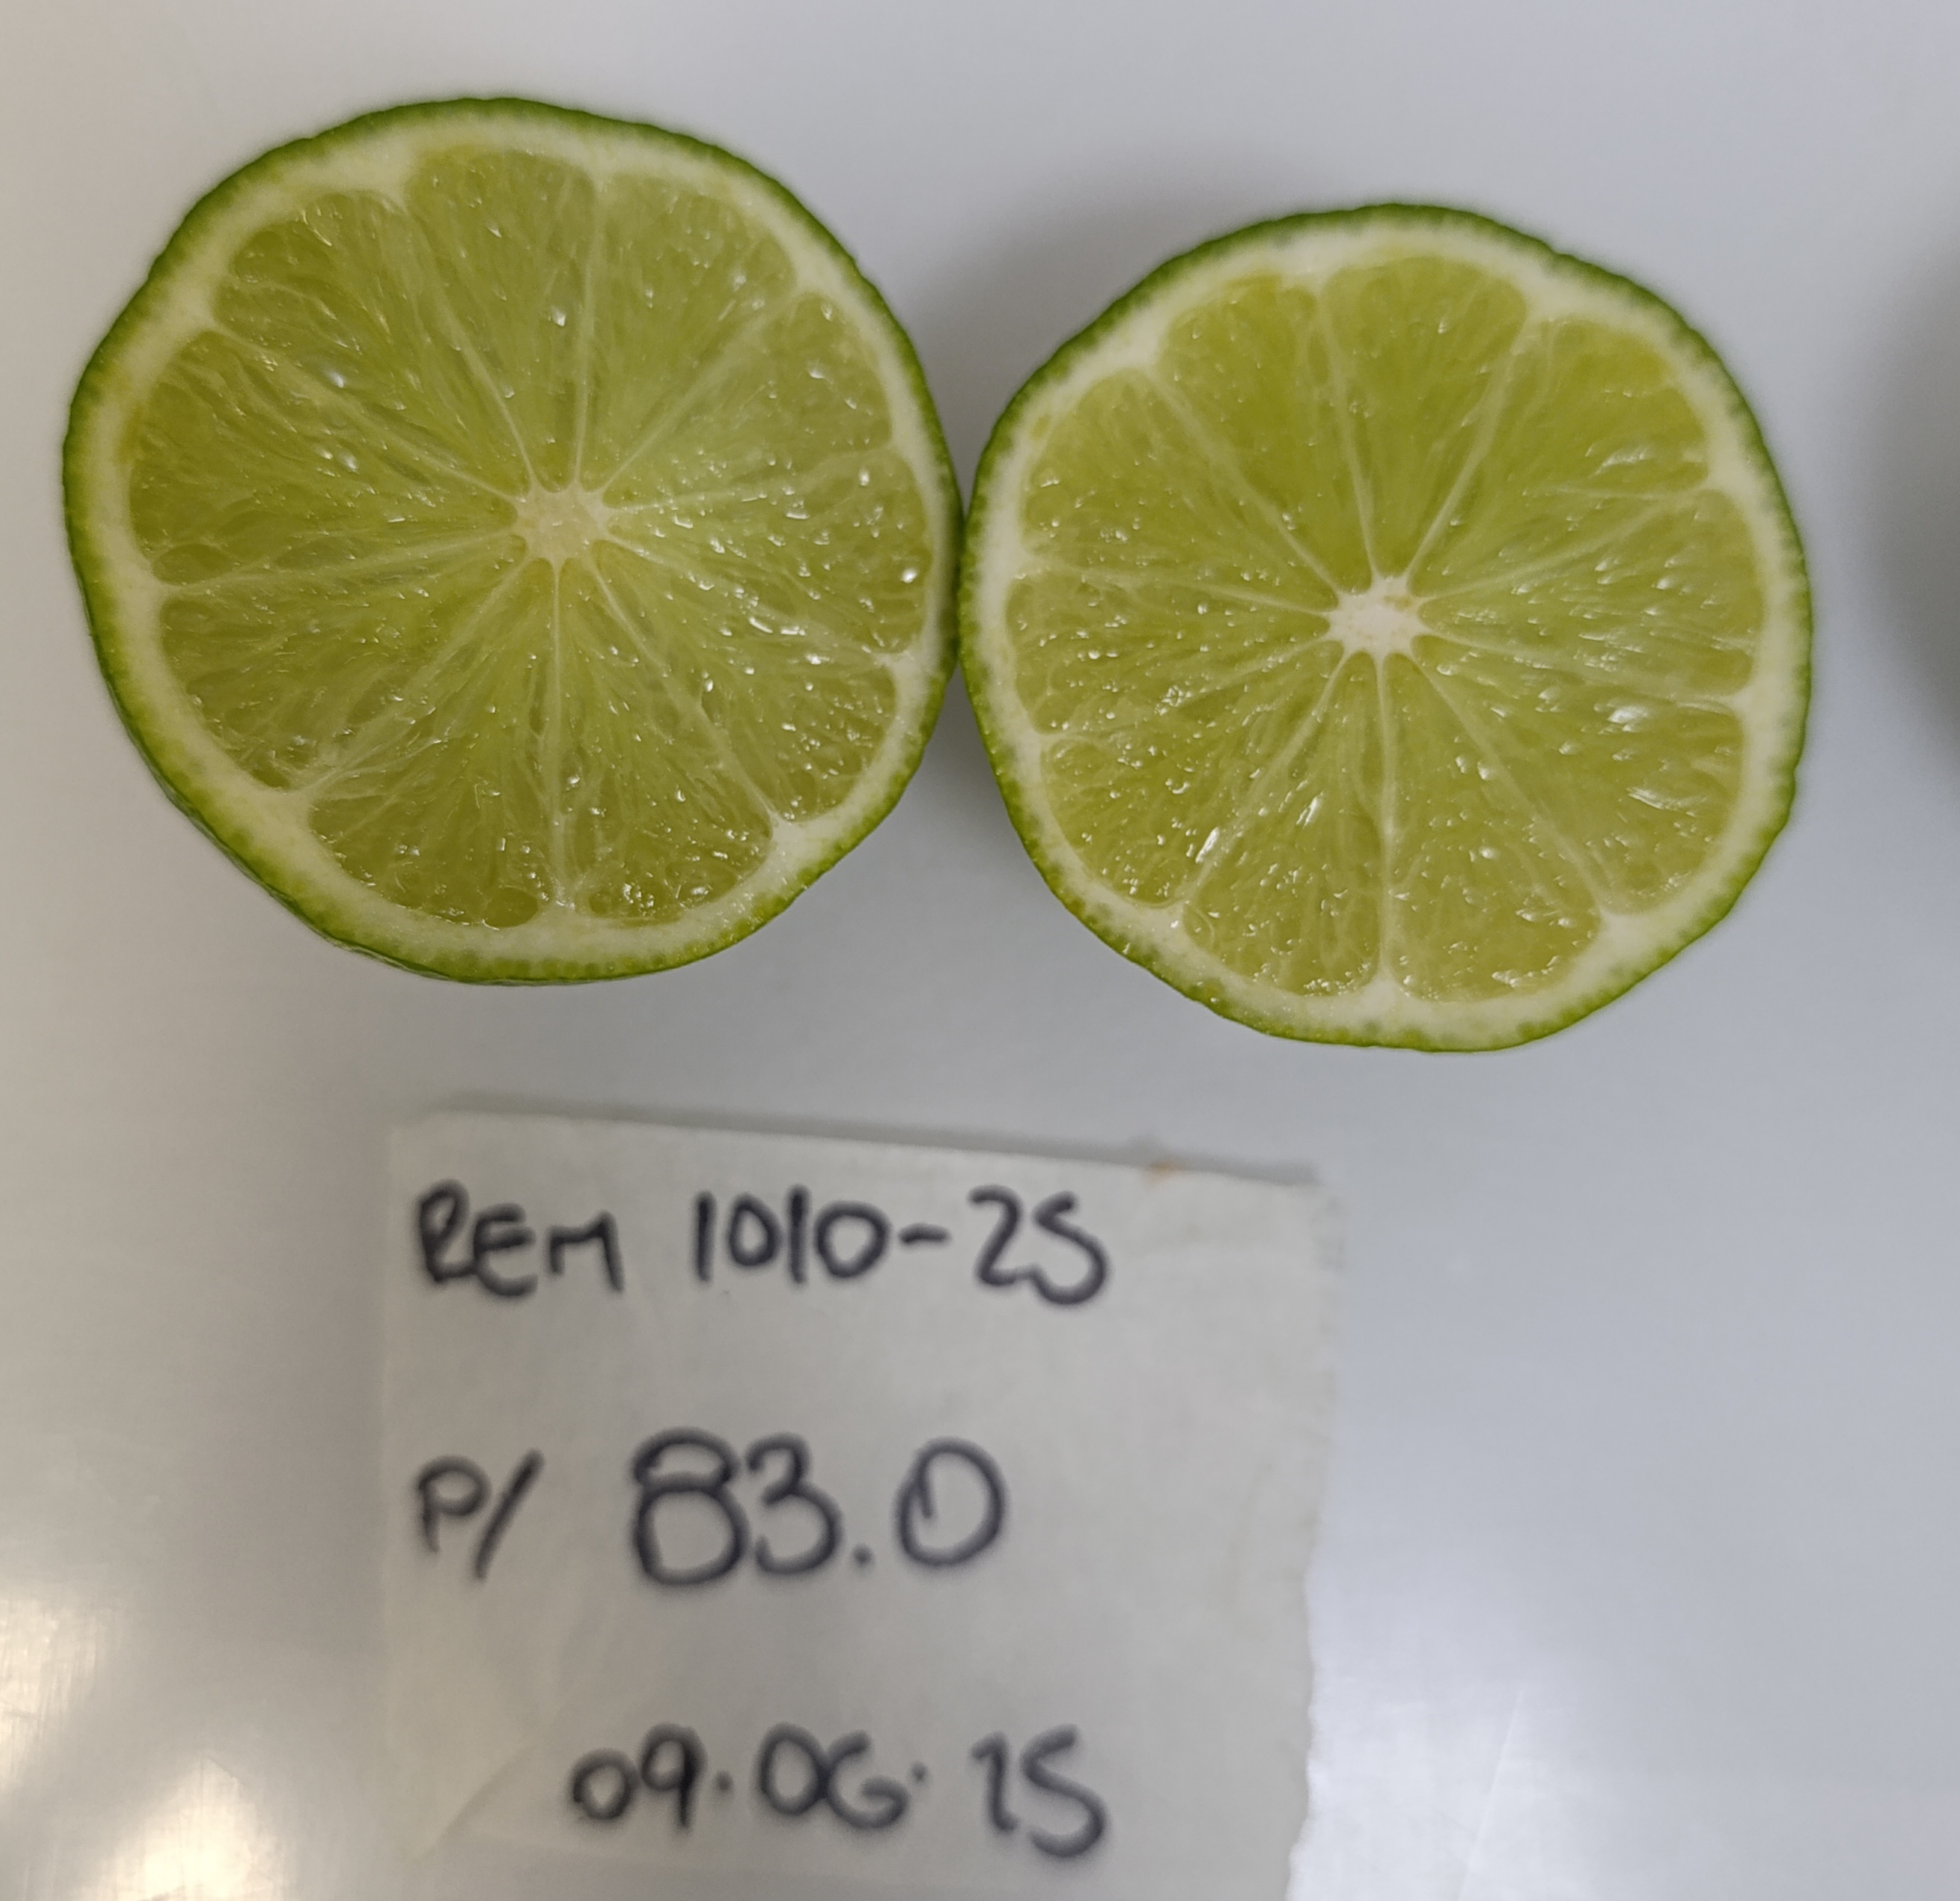 REM 1010-25
P/ 83.0
09.06.25